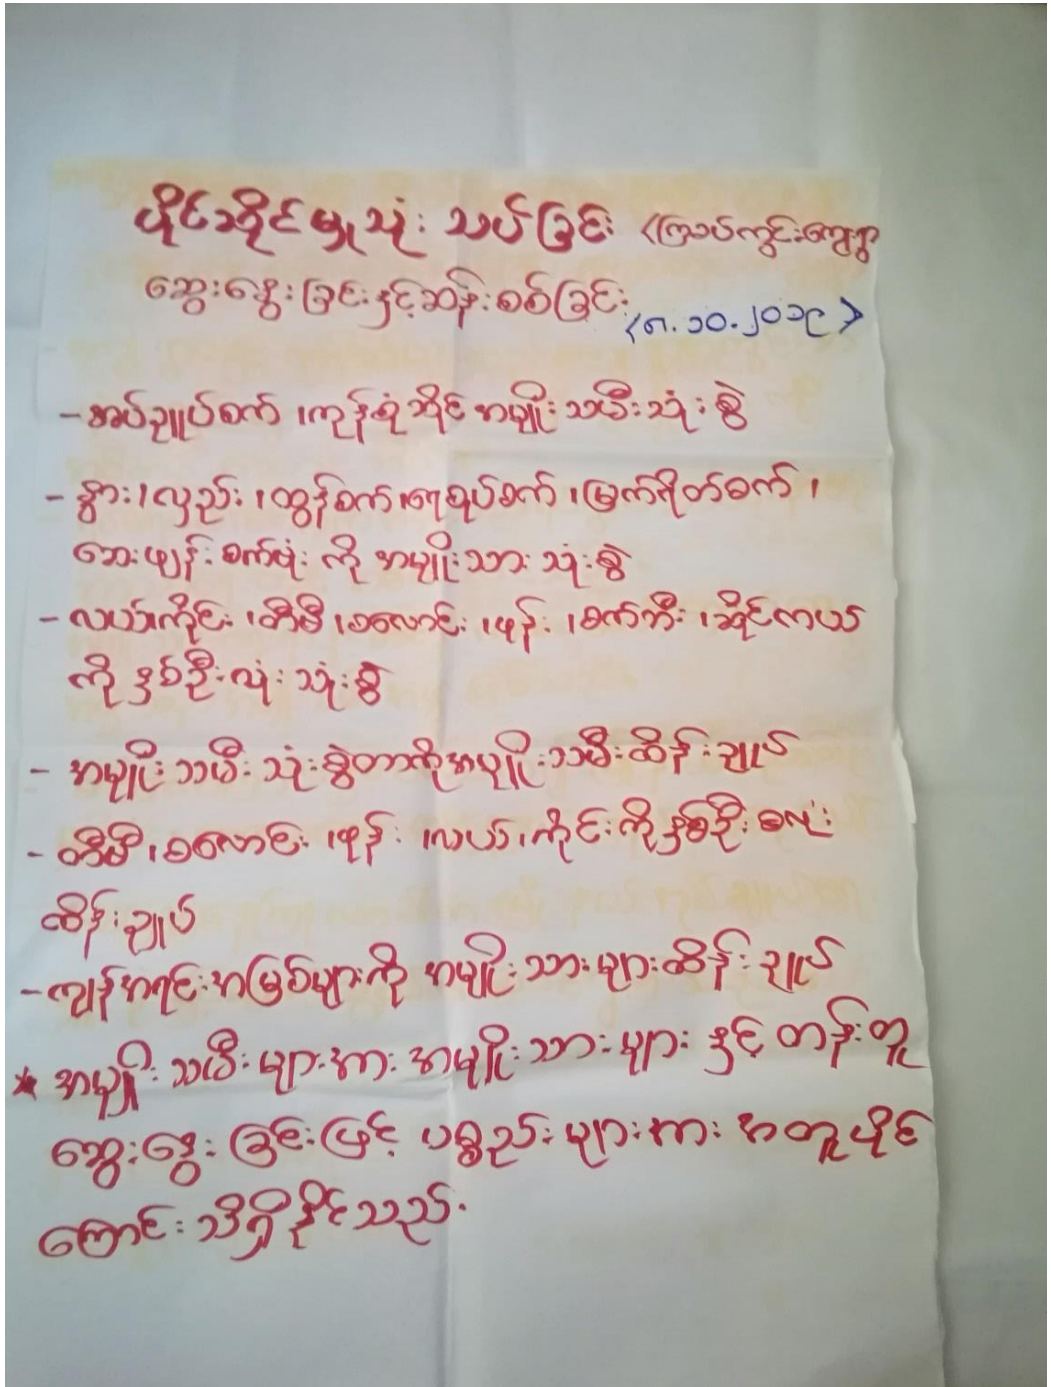 ပိုင်ဆိုင်မှုသုံးသပ်ခြင်း (ကြသပ်ကွင်းကျေးရွာ
ဆွေးနွေးခြင်းနှင့်ဆန်းစစ်ခြင်း
(၈.၁၀.၂၀၁၉)
- အပ်ချုပ်စက် ၊ကုန်စုံဆိုင် အမျိုးသမီးသုံးစွဲ
- နွား၊လှည်း၊ထွန်စက်၊ရေစုပ်စက် ၊မြက်ရိတ်စက် ၊
ဆေးဖျန်းစက်ပုံး ကို အမျိုးသား သုံးစွဲ
- လယ်၊ကိုင်း ၊တီဗီ ၊စလောင်း ၊ဖုန်း ၊စက်ဘီး ၊ဆိုင်ကယ်
ကို နှစ်ဦးလုံး သုံးစွဲ
- အမျိုးသမီး သုံးစွဲတာကိုအမျိုးသမီးထိန်းချုပ်
- တီဗီ ၊စလောင်း ၊ဖုန်း ၊လယ် ၊ကိုင်းကိုနှစ်ဦးစလုံး
ထိန်းချုပ်
- ကျန်အရင်းအမြစ်များကို အမျိုးသားများထိန်းချုပ်
* အမျိုးသမီးများအား အမျိုးသားများ နှင့် တန်းတူ
ဆွေးနွေးခြင်းဖြင့် ပစ္စည်းများအား အတူပိုင်
ကြောင်း သိရှိနိုင်သည်.